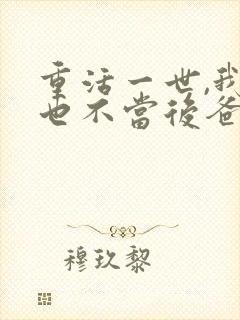 重活一世,我
也不當後爸
穆玖黎